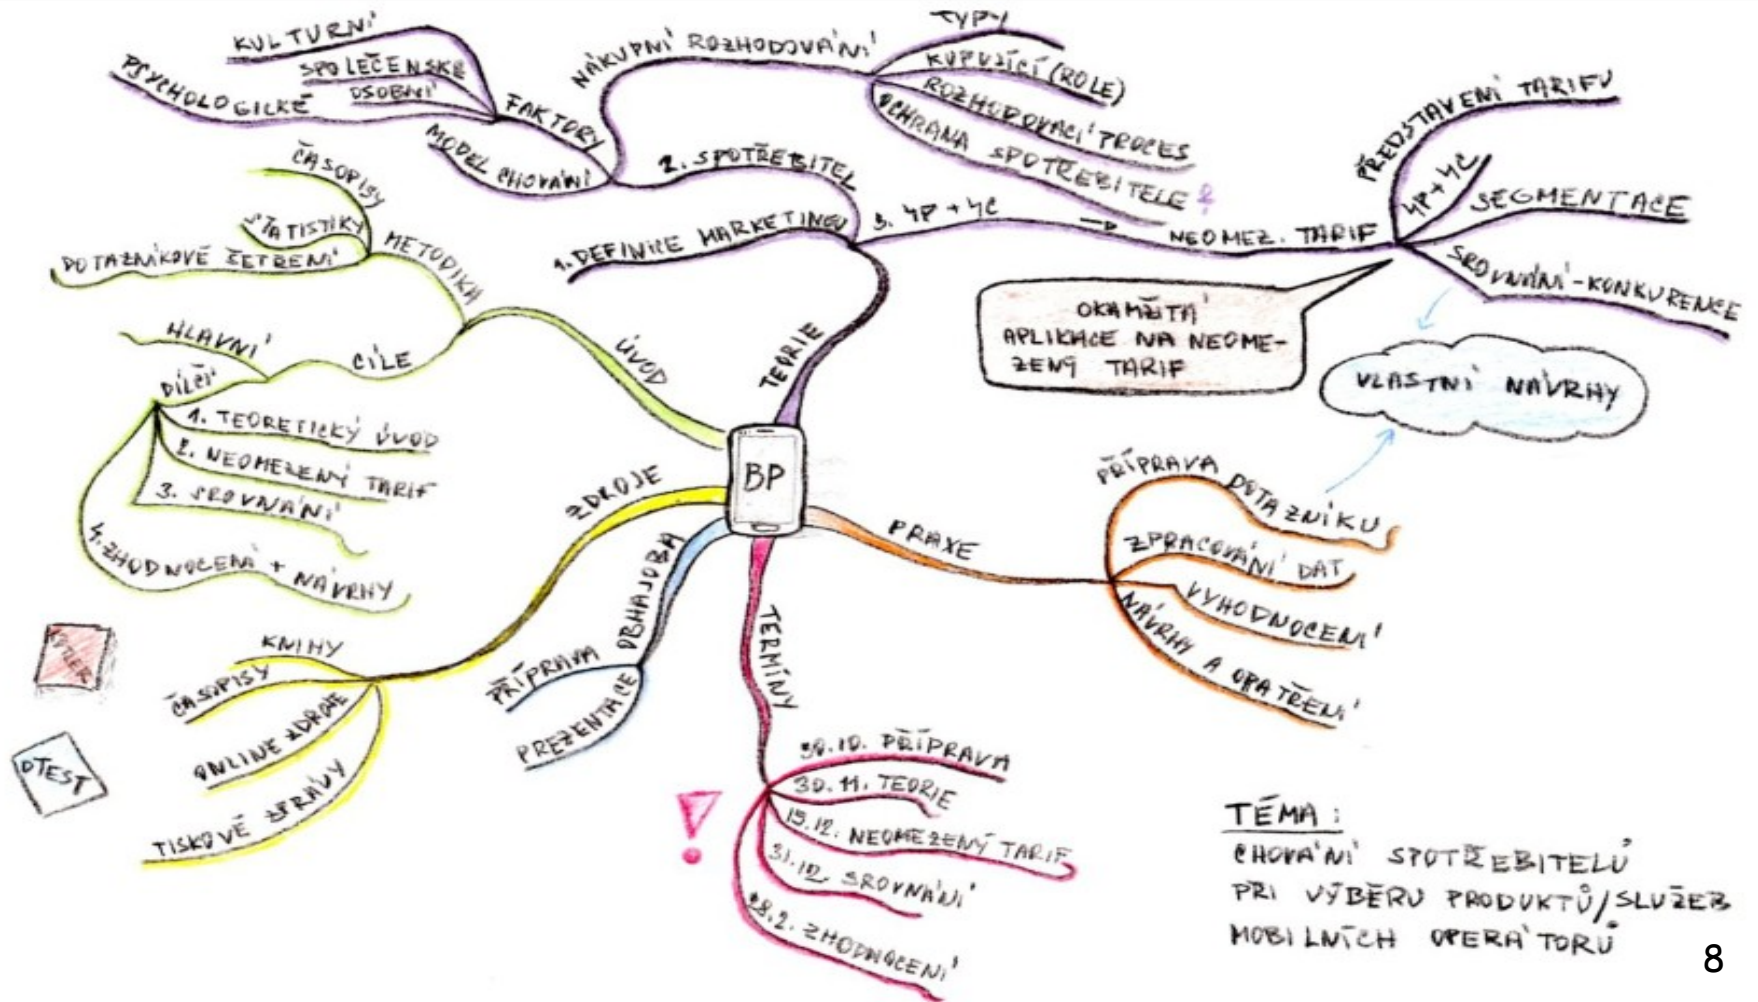 BP
TEORIE
1. DEFINICE MARKETINGU
2. SPOTŘEBITEL
FAKTORY
KULTURNÍ
SPOLEČENSKÉ
OSOBNÍ
PSYCHOLOGICKÉ
MODEL CHOVÁNÍ
NÁKUPNÍ ROZHODOVÁNÍ
TYPY
KUPUJÍCÍ (ROLE)
ROZHODOVACÍ PROCES
OCHRANA SPOTŘEBITELE ?
3. 4P + 4C →
NEOMEZ. TARIF
PŘEDSTAVENÍ TARIFU
4P + 4C
SEGMENTACE
SROVNÁNÍ - KONKURENCE
OKAMŽITÁ
APLIKACE NA NEOME-
ZENÝ TARIF
VLASTNÍ NÁVRHY
ÚVOD
METODIKA
ČASOPISY
STATISTIKY
DOTAZNÍKOVÉ ŠETŘENÍ
CÍLE
HLAVNÍ
DÍLČÍ
1. TEORETICKÝ ÚVOD
2. NEOMEZENÝ TARIF
3. SROVNÁNÍ
4. ZHODNOCENÍ + NÁVRHY
ZDROJE
KNIHY
ČASOPISY
ONLINE ZDROJE
TISKOVÉ ZPRÁVY
KOTLER
DTEST
OBHAJOBA
PŘÍPRAVA
PREZENTACE
TERMÍNY
!
30.10. PŘÍPRAVA
30.11. TEORIE
15.12. NEOMEZENÝ TARIF
31.12. SROVNÁNÍ
28.2. ZHODNOCENÍ
PRAXE
PŘÍPRAVA DOTAZNÍKU
ZPRACOVÁNÍ DAT
VYHODNOCENÍ
NÁVRHY A OPATŘENÍ
TÉMA:
CHOVÁNÍ SPOTŘEBITELŮ
PŘI VÝBĚRU PRODUKTŮ/SLUŽEB
MOBILNÍCH OPERÁTORŮ
8